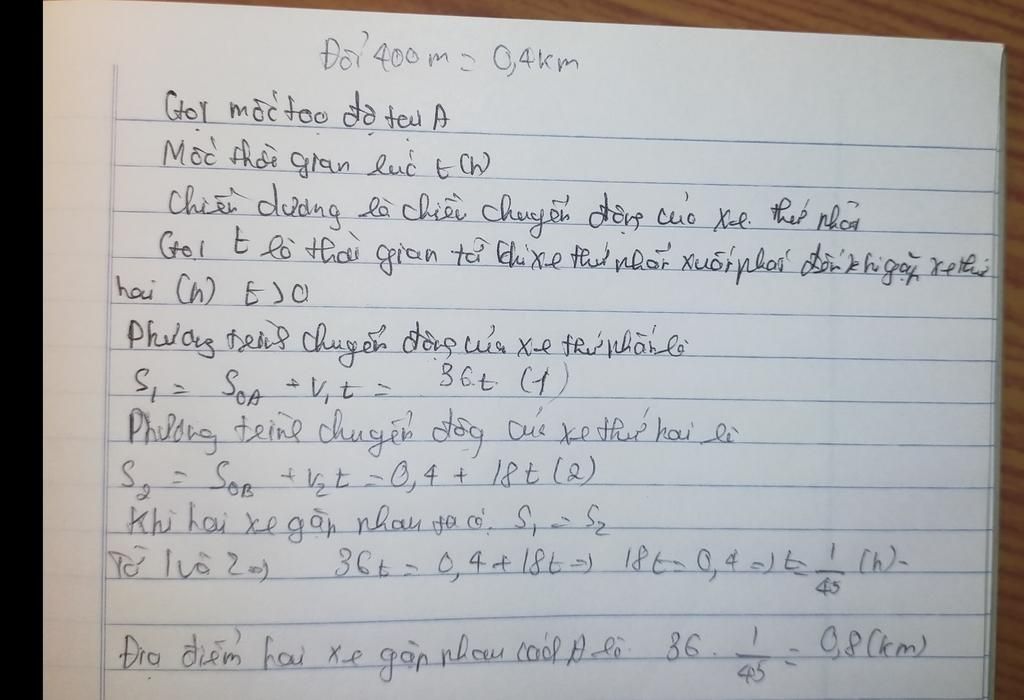 Đổi 400m = 0,4km
Gọi mốc tọa độ tại A
Mốc thời gian lúc t(h)
Chiều dương là chiều chuyển động của xe thứ nhất
Gọi t là thời gian từ khi xe thứ nhất xuất phát đến khi gặp xe thứ
hai (h) t>0
Phương trình chuyển động của xe thứ nhất là
S₁ = S₀A + V₁t = 36t (1)
Phương trình chuyển động của xe thứ hai là
S₂ = S₀B + V₂t = 0,4 + 18t (2)
Khi hai xe gặp nhau ta có. S₁ = S₂
Từ 1 và 2 => 36t = 0,4 + 18t => 18t = 0,4 => t = 1/45 (h)
Địa điểm hai xe gặp nhau cách A là 36 . 1/45 = 0,8 (km)